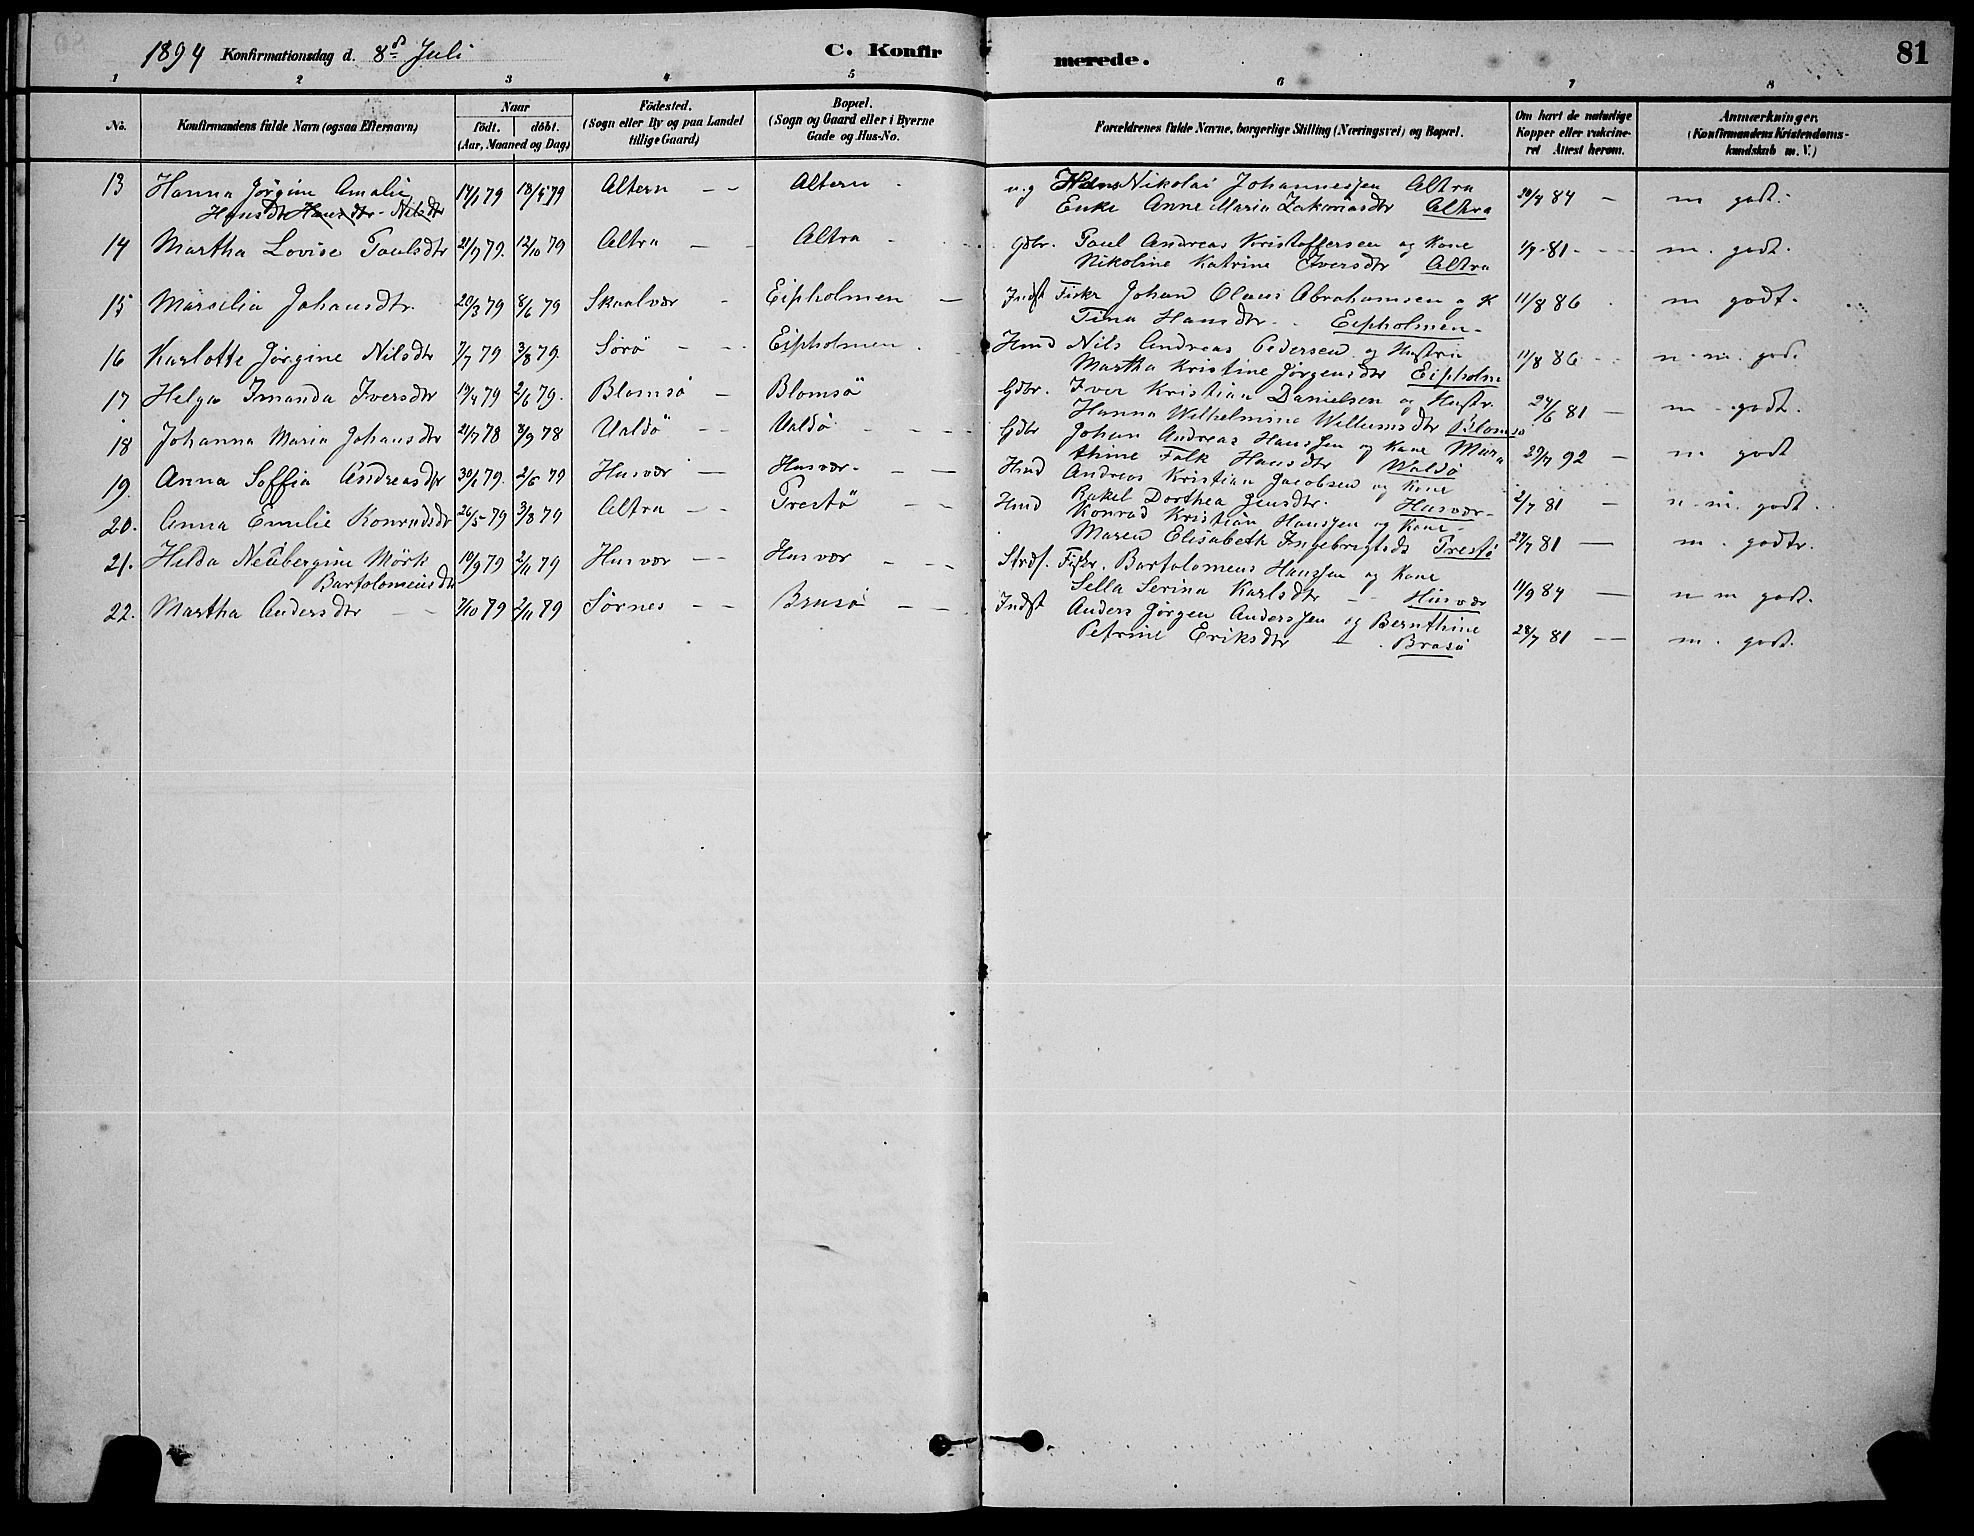 1894 Konfirmationsdag d. 8de Juli
C. Konfirmerede.
81
1 2 3 4 5 6 7 8
No. Konfirmandens fulde Navn (ogsaa Efternavn)
Naar födt. döbt. (Aar, Maaned og Dag)
Födested. (Sogn eller By og paa Landet tillige Gaard)
Bopæl. (Sogn og Gaard eller i Byerne Gade og Hus-No.
Forældrenes fulde Navne, borgerlige Stilling (Næringsvei) og Bopæl.
Om havt de naturlige Kopper eller vakcineret Attest herom.
Anmærkninger. (Konfirmandens Kristendomskundskab m. V.)
13 Hanna Jörgine Amalie 14/1 79 18/5 79 Altern – – Altern – u.g Hans Nikolai Johannessen Altra 20/9 84 – m godt.
Hansdtr Hansdtr - Nilsdtr Enke Anne Maria Zakariasdtr Altra
14 Martha Lovise Paulsdtr 21/9 79. 12/10 79 Altra – – Altra – Gdbr. Paul Andreas Kristoffersen og Kone 1/9 81 - m. godt.
Nikoline Katrine Iversdtr Altra
15 Marselia Johansdtr. 20/3 79 8/6 79 Skaalvær – Eipholmen – Indst Fiskr Johan Olaus Abrahamsen og K 11/8 86 m godt.
Tina Hansdtr. Eipholmen -
16 Karlotte Jørgine Nilsdtr 7/7 79 3/8 79. Sörö – – Eipholmen. Hmd Nils Andreas Pedersen og Hustru 11/8 86 n. m. god.
Martha Kristine Jørgensdtr Eipholm
17 Helga Imanda Iversdtr 19/4 79 2/6 79. Blomsö – Blomsö Gdbr. Iver Kristian Danielsen og Hustr. 24/6 81 – m – godt.
Hanna Wilhelmine Willumsdtr Blomsö
18 Johanna Maria Johansdtr 21/7 78 3/9 78 Ualdö – – Ualdö – Gdbr Johan Andreas Hanssen og Kone Mara 29/7 92 – m godt
thine Falk Hansdtr Waldö
19. Anna Soffia Andreasdtr 30/1 79. 2/6 79 Husvær – Husvær. – – Hmd Andreas Kristian Jacobsen og Kone 2/7 81 – n. m. godt.
Rakel Dorthea Jensdtr. Husvær -
20. Anna Emelie Konradsdtr 26/5 79 3/8 79 Altra – – Prestö – – Hmd Konrad Kristian Hanssen og Kone - 27/7 81 – m. godtr.
Maren Elisabeth Ingebrigtsd. Prestö
21. Helda Neubergine Mörk 10/9 79 2/11 79 Husvær – – Husvær – – Strds. Fiskr. Bartolomeus Hanssen og Kone 11/9 84 – n m godt.
Bartolomeusdtr Sella Serina Karlsdtr – – Husvær
22. Martha Andersdtr – – 7/10 79 2/11 79 Sörnes – – Brasö – – Indst Anders Jörgen Anderssen og Bernthine 28/7 81 – – m. godt.
Petrine Eriksdtr – . Brasö